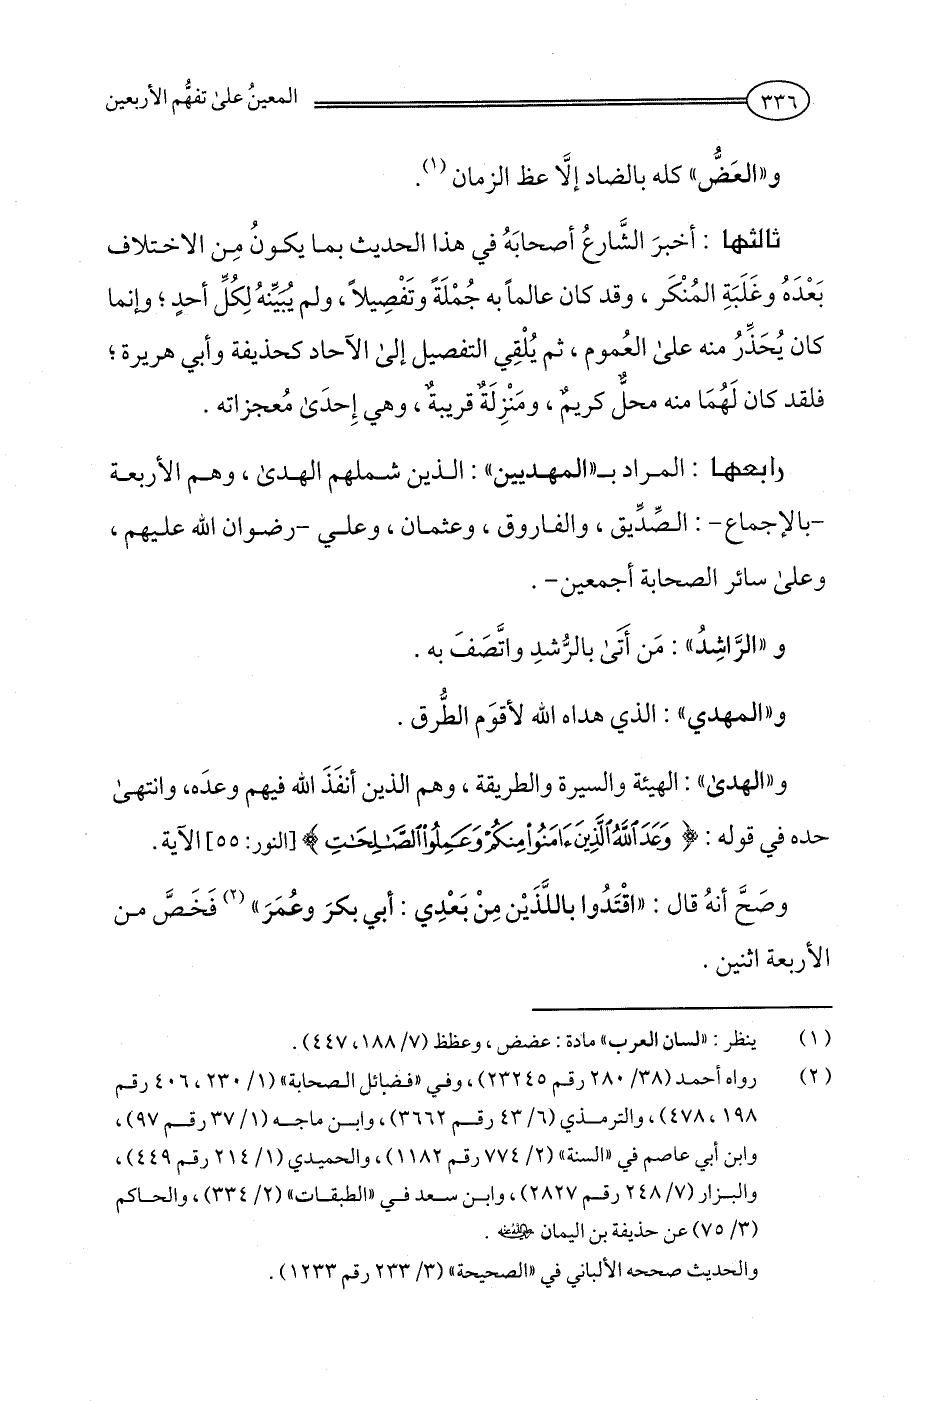 ٣٣٦ المعينُ علىٰ تفهُّم الأربعين
و«العَضُّ» كله بالضاد إلَّا عظ الزمان (١).
ثالثها : أخبرَ الشَّارعُ أصحابَهُ في هذا الحديث بما يكونُ مِن الاختلاف
بَعْدَهُ وغَلَبَةِ المُنْكَر ، وقد كان عالماً به جُمْلَةً وتَفْصِيلاً ، ولم يُبَيِّنْهُ لِكُلِّ أحدٍ ؛ وإنما
كان يُحَذِّرُ منه علىٰ العُموم ، ثم يُلْقِي التفصيل إلىٰ الآحاد كحذيفة وأبي هريرة ؛
فلقد كان لَهُمَا منه محلٌّ كريمٌ ، ومَنْزِلَةٌ قريبةٌ ، وهي إِحدَىٰ مُعجزاته .
رابعها : المراد بـ«المهديين» : الذين شملهم الهدىٰ ، وهم الأربعة
-بالإجماع- : الصِّدِّيق ، والفاروق ، وعثمان ، وعلي -رضوان الله عليهم ،
وعلىٰ سائر الصحابة أجمعين- .
و «الرَّاشِدُ» : مَن أَتَىٰ بالرُّشدِ واتَّصَفَ به .
و«المهدي» : الذي هداه الله لأقوَم الطُّرق .
و«الهدىٰ» : الهيئة والسيرة والطريقة ، وهم الذين أنفَذَ الله فيهم وعدَه، وانتهىٰ
حده في قوله : ﴿ وَعَدَ ٱللَّهُ ٱلَّذِينَ ءَامَنُواْ مِنكُمْ وَعَمِلُواْ ٱلصَّٰلِحَٰتِ ﴾ [النور: ٥٥] الآية.
وصَحَّ أنهُ قال : «اقْتَدُوا باللَّذَيْن مِنْ بَعْدِي : أبي بكرَ وعُمَرَ» (٢) فَخَصَّ من
الأربعة اثنين .
(١) ينظر : «لسان العرب» مادة : عضض ، وعظظ (٧/ ١٨٨، ٤٤٧) .
(٢) رواه أحمد (٣٨/ ٢٨٠ رقم ٢٣٢٤٥) ، وفي «فضائل الصحابة» (١/ ٢٣٠ ، ٤٠٦ رقم
١٩٨ ، ٤٧٨) ، والترمذي (٦/ ٤٣ رقم ٣٦٦٢) ، وابن ماجه (١/ ٣٧ رقم ٩٧) ،
وابن أبي عاصم في «السنة» (٢/ ٧٧٤ رقم ١١٨٢) ، والحميدي (١/ ٢١٤ رقم ٤٤٩) ،
والبزار (٧/ ٢٤٨ رقم ٢٨٢٧) ، وابن سعد في «الطبقات» (٢/ ٣٣٤) ، والحاكم
(٣/ ٧٥) عن حذيفة بن اليمان رضي الله عنه .
والحديث صححه الألباني في «الصحيحة» (٣/ ٢٣٣ رقم ١٢٣٣) .